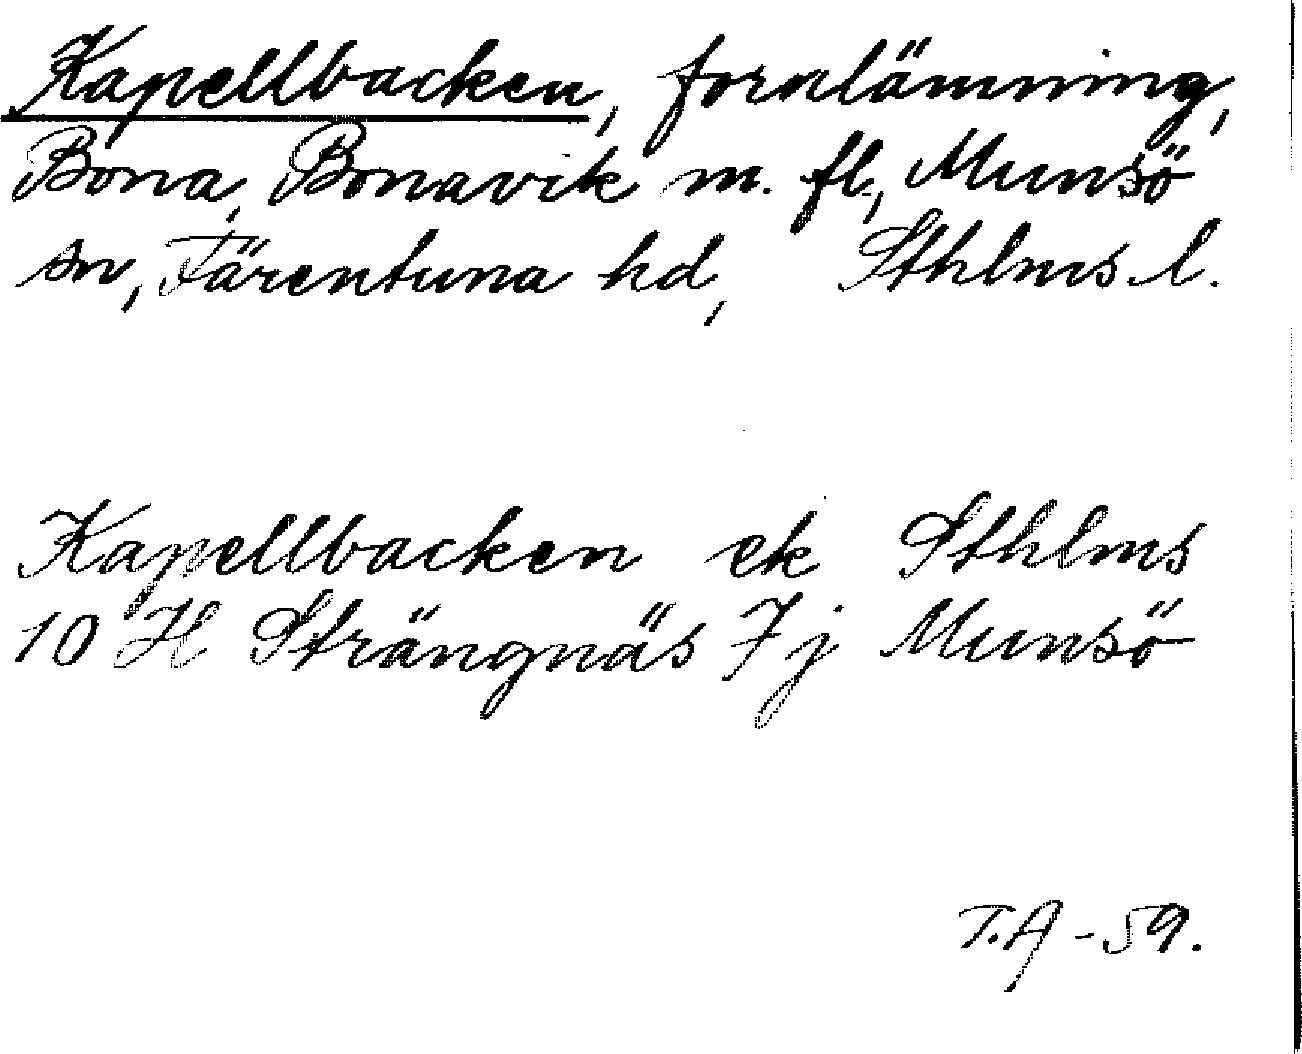 Kapellbacken, fornlämning,
Bona, Bonavik m. fl., Munsö
sn, Färentuna hd, Sthlms l.
Kapellbacken ek Sthlms
10 H Strängnäs 7 j Munsö
T.A - 59.